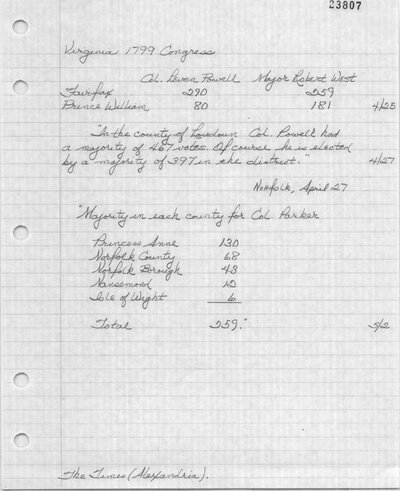 23807
Virginia 1799 Congress
Col. Leven Powell Major Robert West
Fairfax 290 259
Prince William 80 181 4/25
"In the county of Loudoun Col. Powell had
a majority of 467 votes. Of course he is elected
by a majority of 397 in the district." 4/27
Norfolk, April 27
"Majority in each county for Col. Parker
Princess Anne 130
Norfolk County 68
Norfolk Borough 43
Nansemond 12
Isle of Wight 6
Total 259." 5/2
The Times (Alexandria).